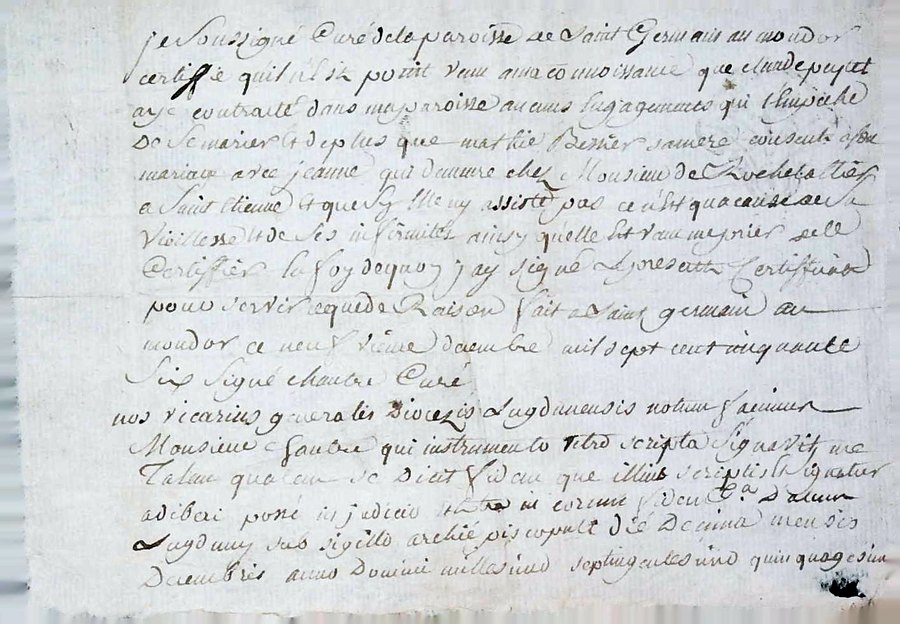 je Soussigné Curé de la paroisse de Saint Germain au mondor
certiffie quil n'est point venu ama connoissance que claude papet
aye contracté dans ma paroisse aucuns Engagements qui Lempeche
De Se marier Et de plus que mathie Bernier sa mere consent a son
mariage avec jeanne qui demeure chez Monsieur de Rochetaillée
a Saint Etienne Et que Sy Elle ny assiste pas ce n'Est qua cause de Sa
vieillesse Et de Ses infirmités ainsy quelle Est venu me prier de le
Certiffier En foy dequoy j'ay signé Le present Certifficat
pour servir reque de Raison fait a Saint germain au
mondor ce neufvieme decembre mil sept cent cinquante
Six Signé chautre Curé
nos vicarius generalis Diocezis Lugdunensis notum facimus
Monsieur chautre qui instrumento retro scripta Signavit me
Talem qualem se Dicit fidem que illius scriptis Et Signatur
adiberi posse in judicio Extra in eorum fidem Datum
Lugduny sub sigillo archiépiscopali Die Decima mensis
Decembris anno Domini millesimo septingentesimo quinquagesim